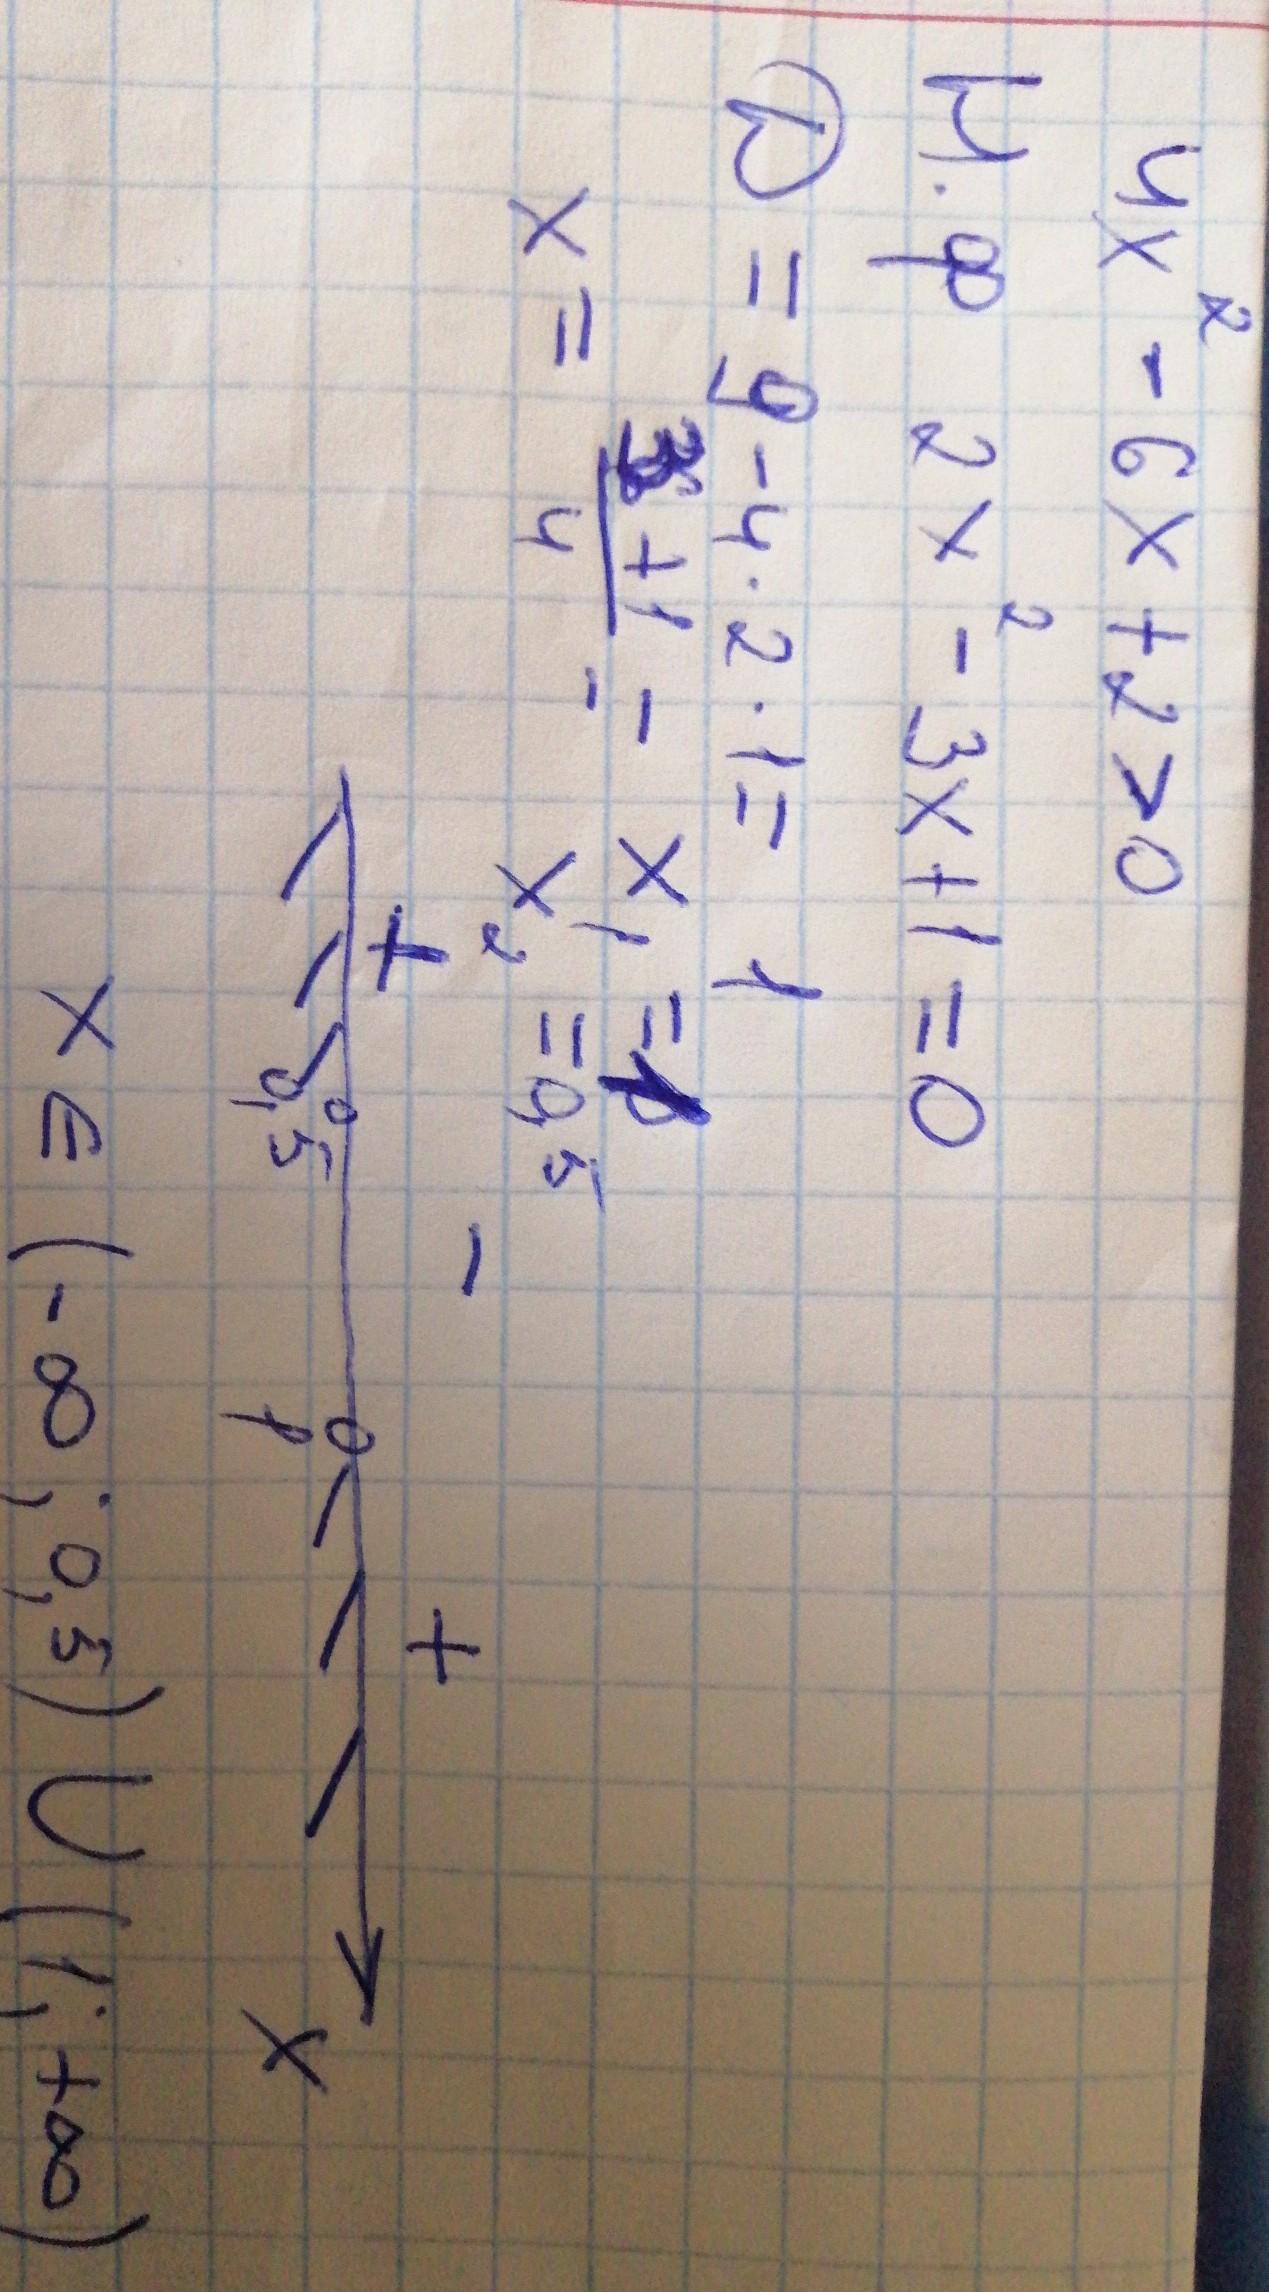 4x² - 6x + 2 > 0
Н.ф 2x² - 3x + 1 = 0
D = 9 - 4 · 2 · 1 = 1
x = (3 ± 1)/4 -- x₁ = 1
x₂ = 0,5
+ - +
0,5 1 x
x ∈ (-∞; 0,5) ∪ (1; +∞)